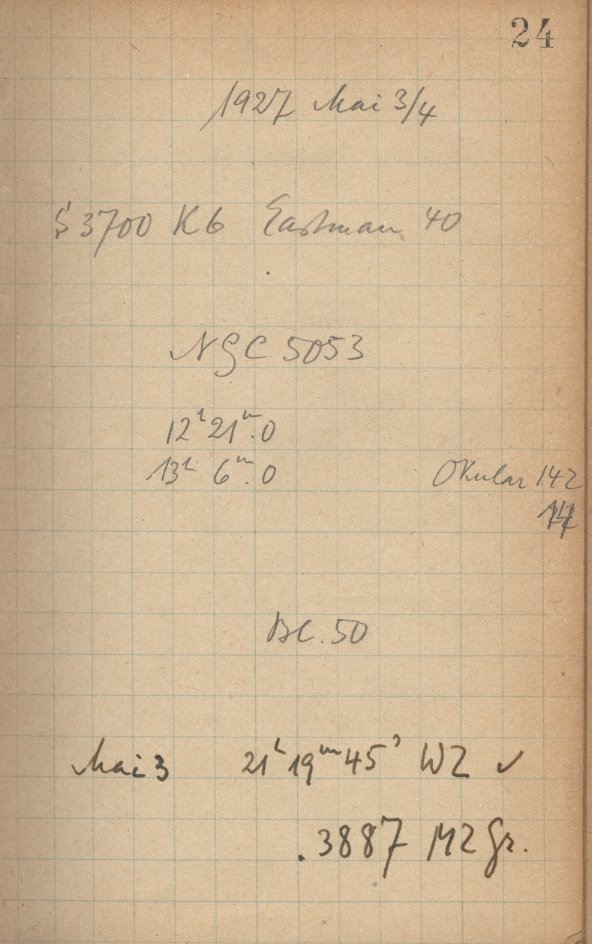 24
1927 Mai 3/4
S 3700 K6 Eastman 40
NGC 5053
12ʰ 21ᵐ.0
13ʰ 6ᵐ.0 Okular 142
14
Bl. 50
Mai 3 21ʰ 19ᵐ 45ˢ WZ ✓
.3887 MZ Gr.